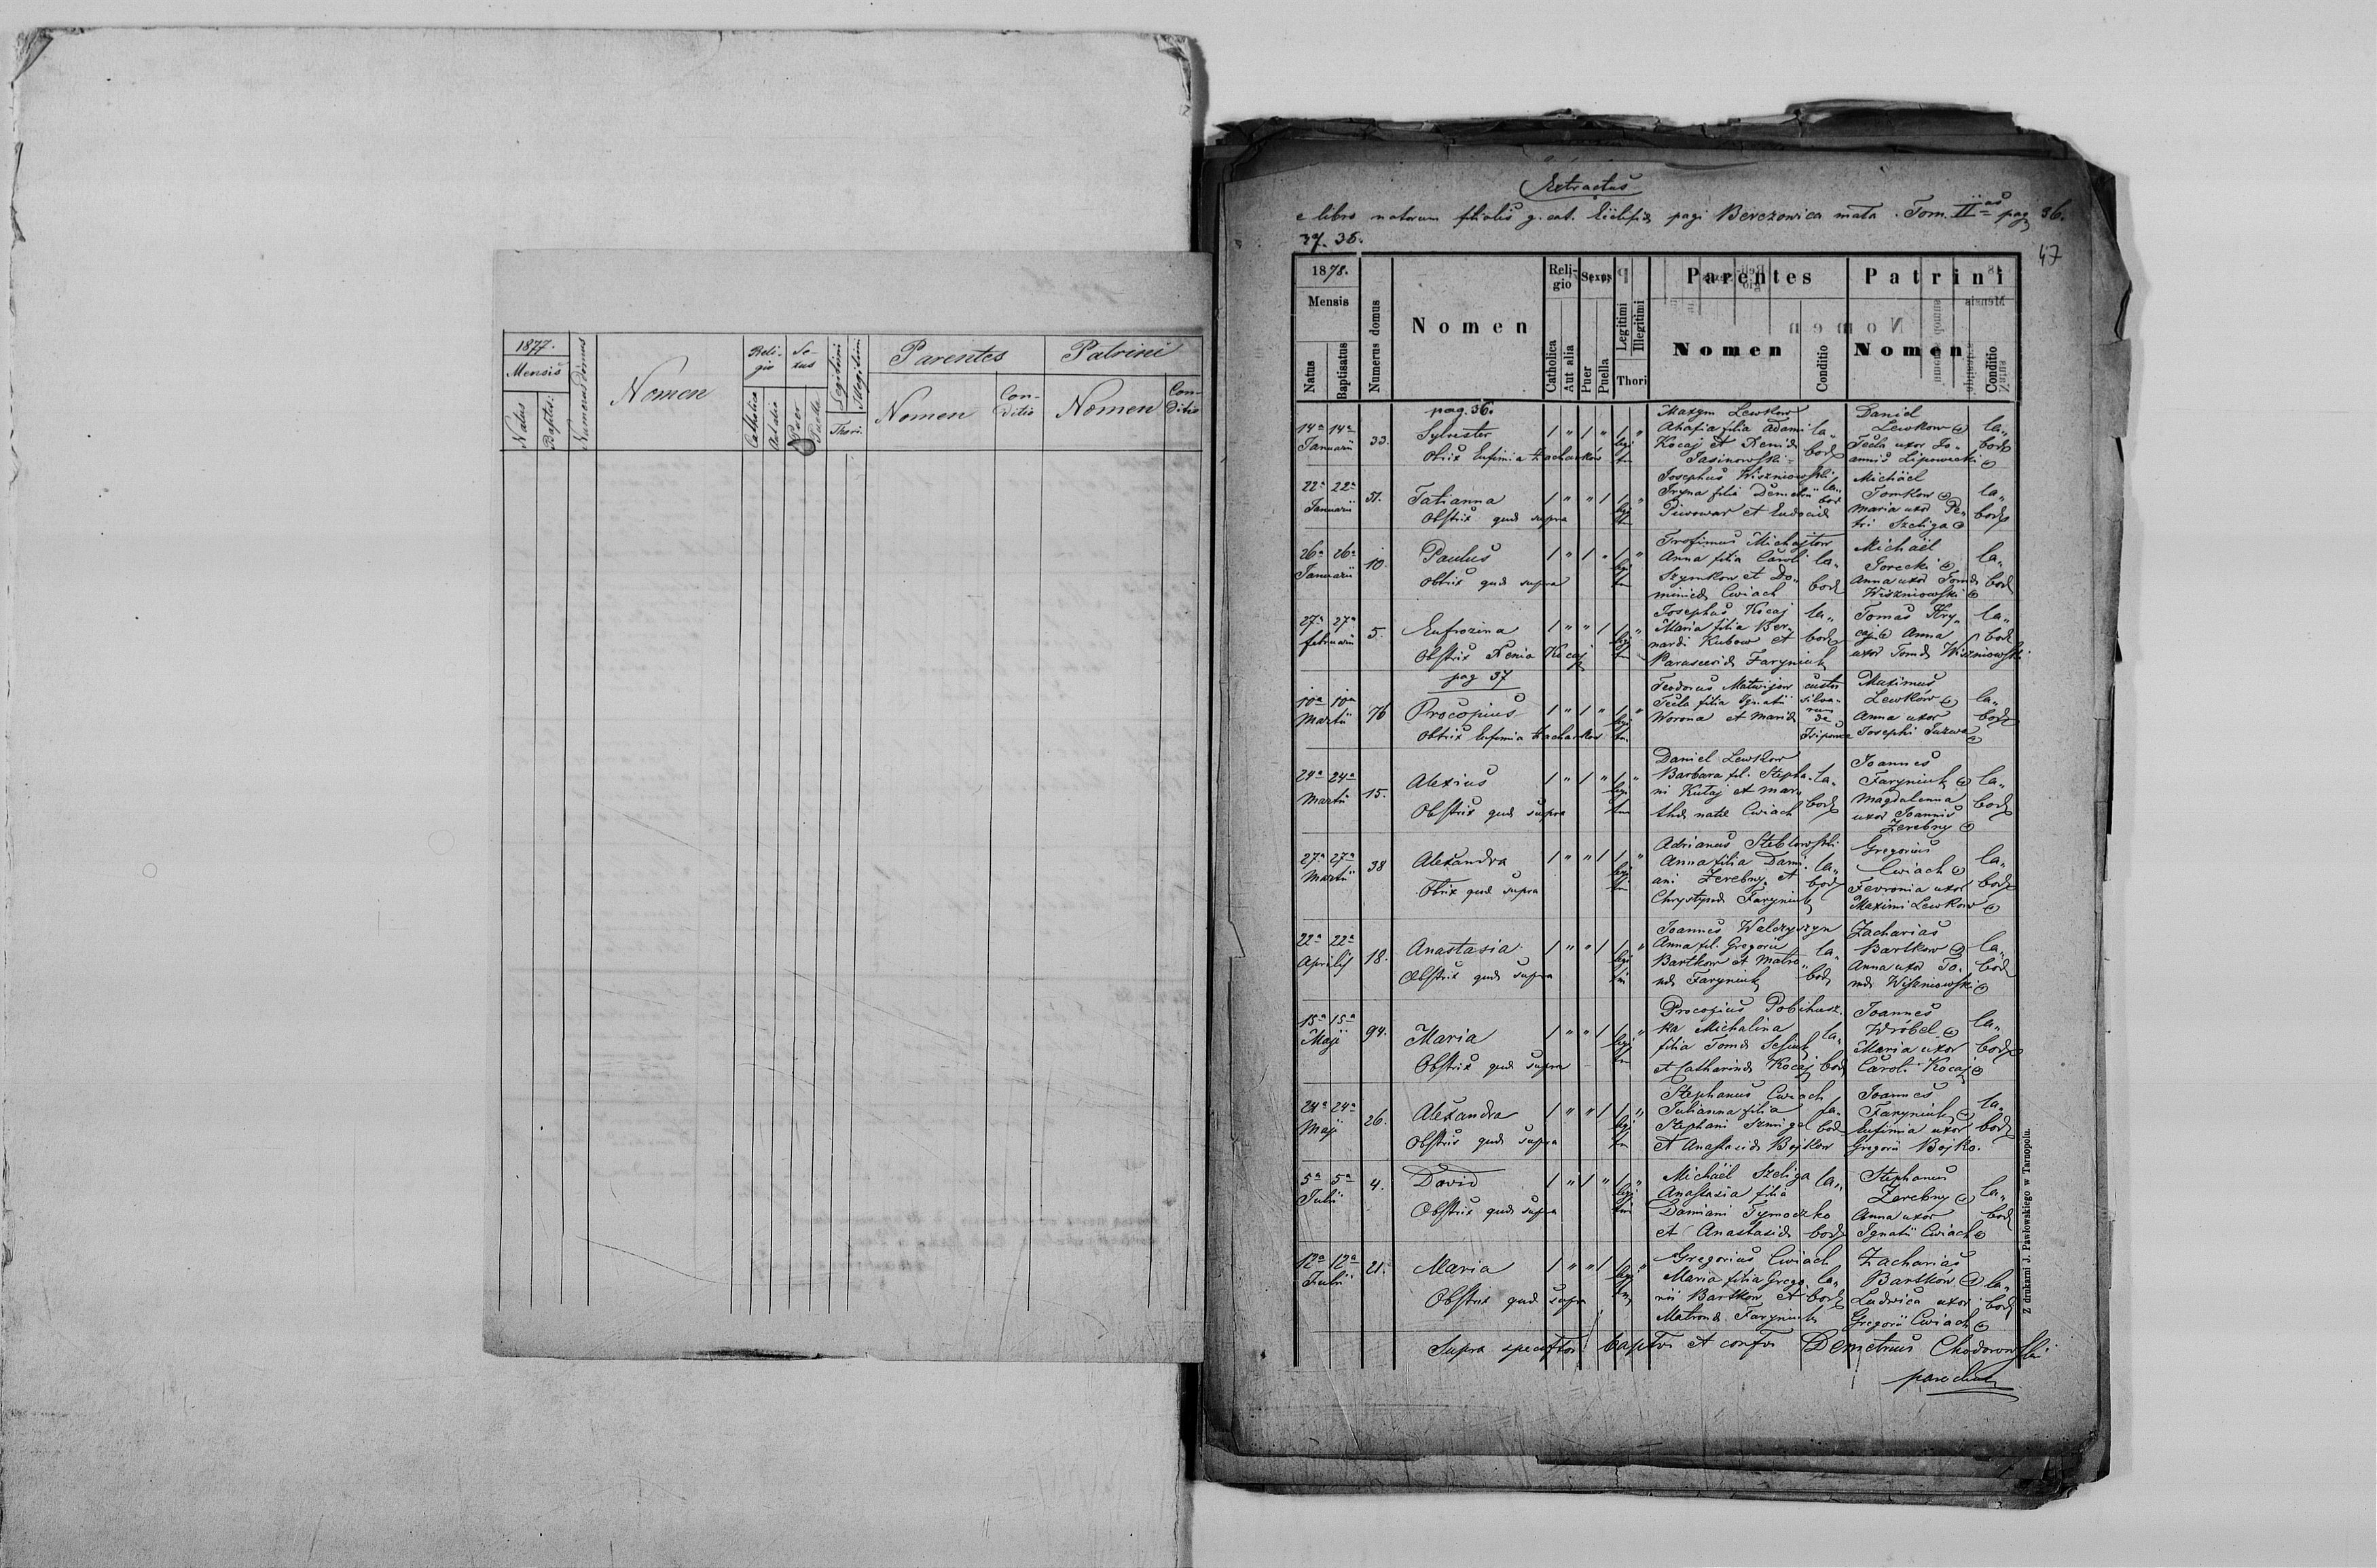 1877.
Mensis
Natus
Baptis:
Numerus domus
Nomen
Reli-
gio
Catholica
Aut alia
Se-
xus
Puer
Puella
Legitimi
Illegitimi
Thori.
Parentes
Nomen
Con-
ditio
Patrini
Nomen
Con-
ditio
Extractus
e libro natorum filialis g. cat. pagi Berezowica mała. Tom. II pag 36.
37. 38.
47
1878.
Mensis
Natus
Baptisatus
Numerus domus
Nomen
Reli-
gio
Catholica
Aut alia
Sexus
Puer
Puella
Legitimi
Illegitimi
Thori
Parentes
Nomen
Conditio
Patrini
Nomen
Conditio
pag. 36.
14a 14a
Januarii
33.
Sylvester
Obstrix Eufimia Zacharków
Maxym Lewkow
Ahafia filia Adami
Kocaj et
Jasinowski
la„
bor
Daniel
Lewkow
Tecla uxor Jo„
annis Lipowecki
la„
bor
22a 22a
Januarii
51.
Tatianna
Obstrix quae supra
Josephus Wiszniowski
Iryna filia Demetrii
Piwowar et Eudocia
la„
bor
Michaël
Tomkow
Maria uxor Pe„
tri Szeliga
la„
bor
26a 26a
Januarii
10.
Paulus
Obstrix quae supra
Trofimus Michajlow
Anna filia Caroli
Szymkow et Do„
minicae Cwiach
la„
bor
Michaël
Gorecki
Anna uxor Tomae
Wiszniowski
la„
bor
27a 27a
februarii
5.
Eufrozina
Obstrix Xenia Kocaj
Josephus Kocaj
Maria filia Ber„
nardi Kubow et
Parascevia Faryniuk
la„
bor
Tomas Hry„
caj Anna
uxor Tomae Wiszniowski
la„
bor
pag 37
10a 10a
Martii
76
Procopius
Obstrix Eufimia Zacharkow
Teodorus Matwijow
Tecla filia Ignatii
Worona et Maria
custos
silva-
rum
de
Maximus
Lewków
Anna uxor
Josephi
la„
bor
24a 24a
Martii
15.
Alexius
Obstrix quae supra
Daniel Lewkow
Barbara fil. Stepha„
ni Kutaj et Mar„
thae natae Cwiach
la„
bor
Joannes
Faryniuk
Magdalenna
uxor Joannis
Zerebny
la„
bor
27a 27a
Martii
38
Alexandra
Obstrix quae supra
Adrianus Steblowski
Anna filia Dami„
ani Zerebny et
Chrystyna Faryniuk
la„
bor
Gregorius
Cwiach
Fevronia uxor
Maximi Lewkow
la„
bor
22a 22a
Aprilis
18.
Anastasia
Obstrix quae supra
Joannes Walczyszyn
Anna fil. Gregorii
Bartkow et Matro„
nae Faryniuk
la„
bor
Zacharias
Bartkow
Anna uxor To„
mae Wiszniowski
la„
bor
15a 15a
Maji
94.
Maria
Obstrix quae supra
Procopius Pobihusz„
ka Michalina
filia Tomae
et Catharinae Kocaj
la„
bor
Joannes
Wróbel
Maria uxor
Caroli Kocaj
la„
bor
24a 24a
Maji
26.
Alexandra
Obstrix quae supra
Stephanus Cwiach
Julianna filia
Stephani Szmigel
et Anastasiae Bojkow
la„
bor
Joannes
Faryniuk
Eufimia uxor
Gregorii Bojko.
la„
bor
5a 5a
Julii
4.
David
Obstrix quae supra
Michaël Szeliga
Anastasia filia
Damiani Tymoczko
et Anastasiae
la„
bor
Stephanus
Zerebny
Anna uxor
Ignatii Cwiach
la„
bor
12a 12a
Julii
21.
Maria
Obstrix quae supra
Gregorius Cwiach
Maria filia Grego„
rii Bartkow et
Matronae Faryniuk
la„
bor
Zacharias
Bartków
Ludwica uxor
Gregorii Cwiach
la„
bor
Supra bapt. et conf. Demetrius Chodorowski
parochus
Z drukarni J. Pawłowskiego w Tarnopolu.